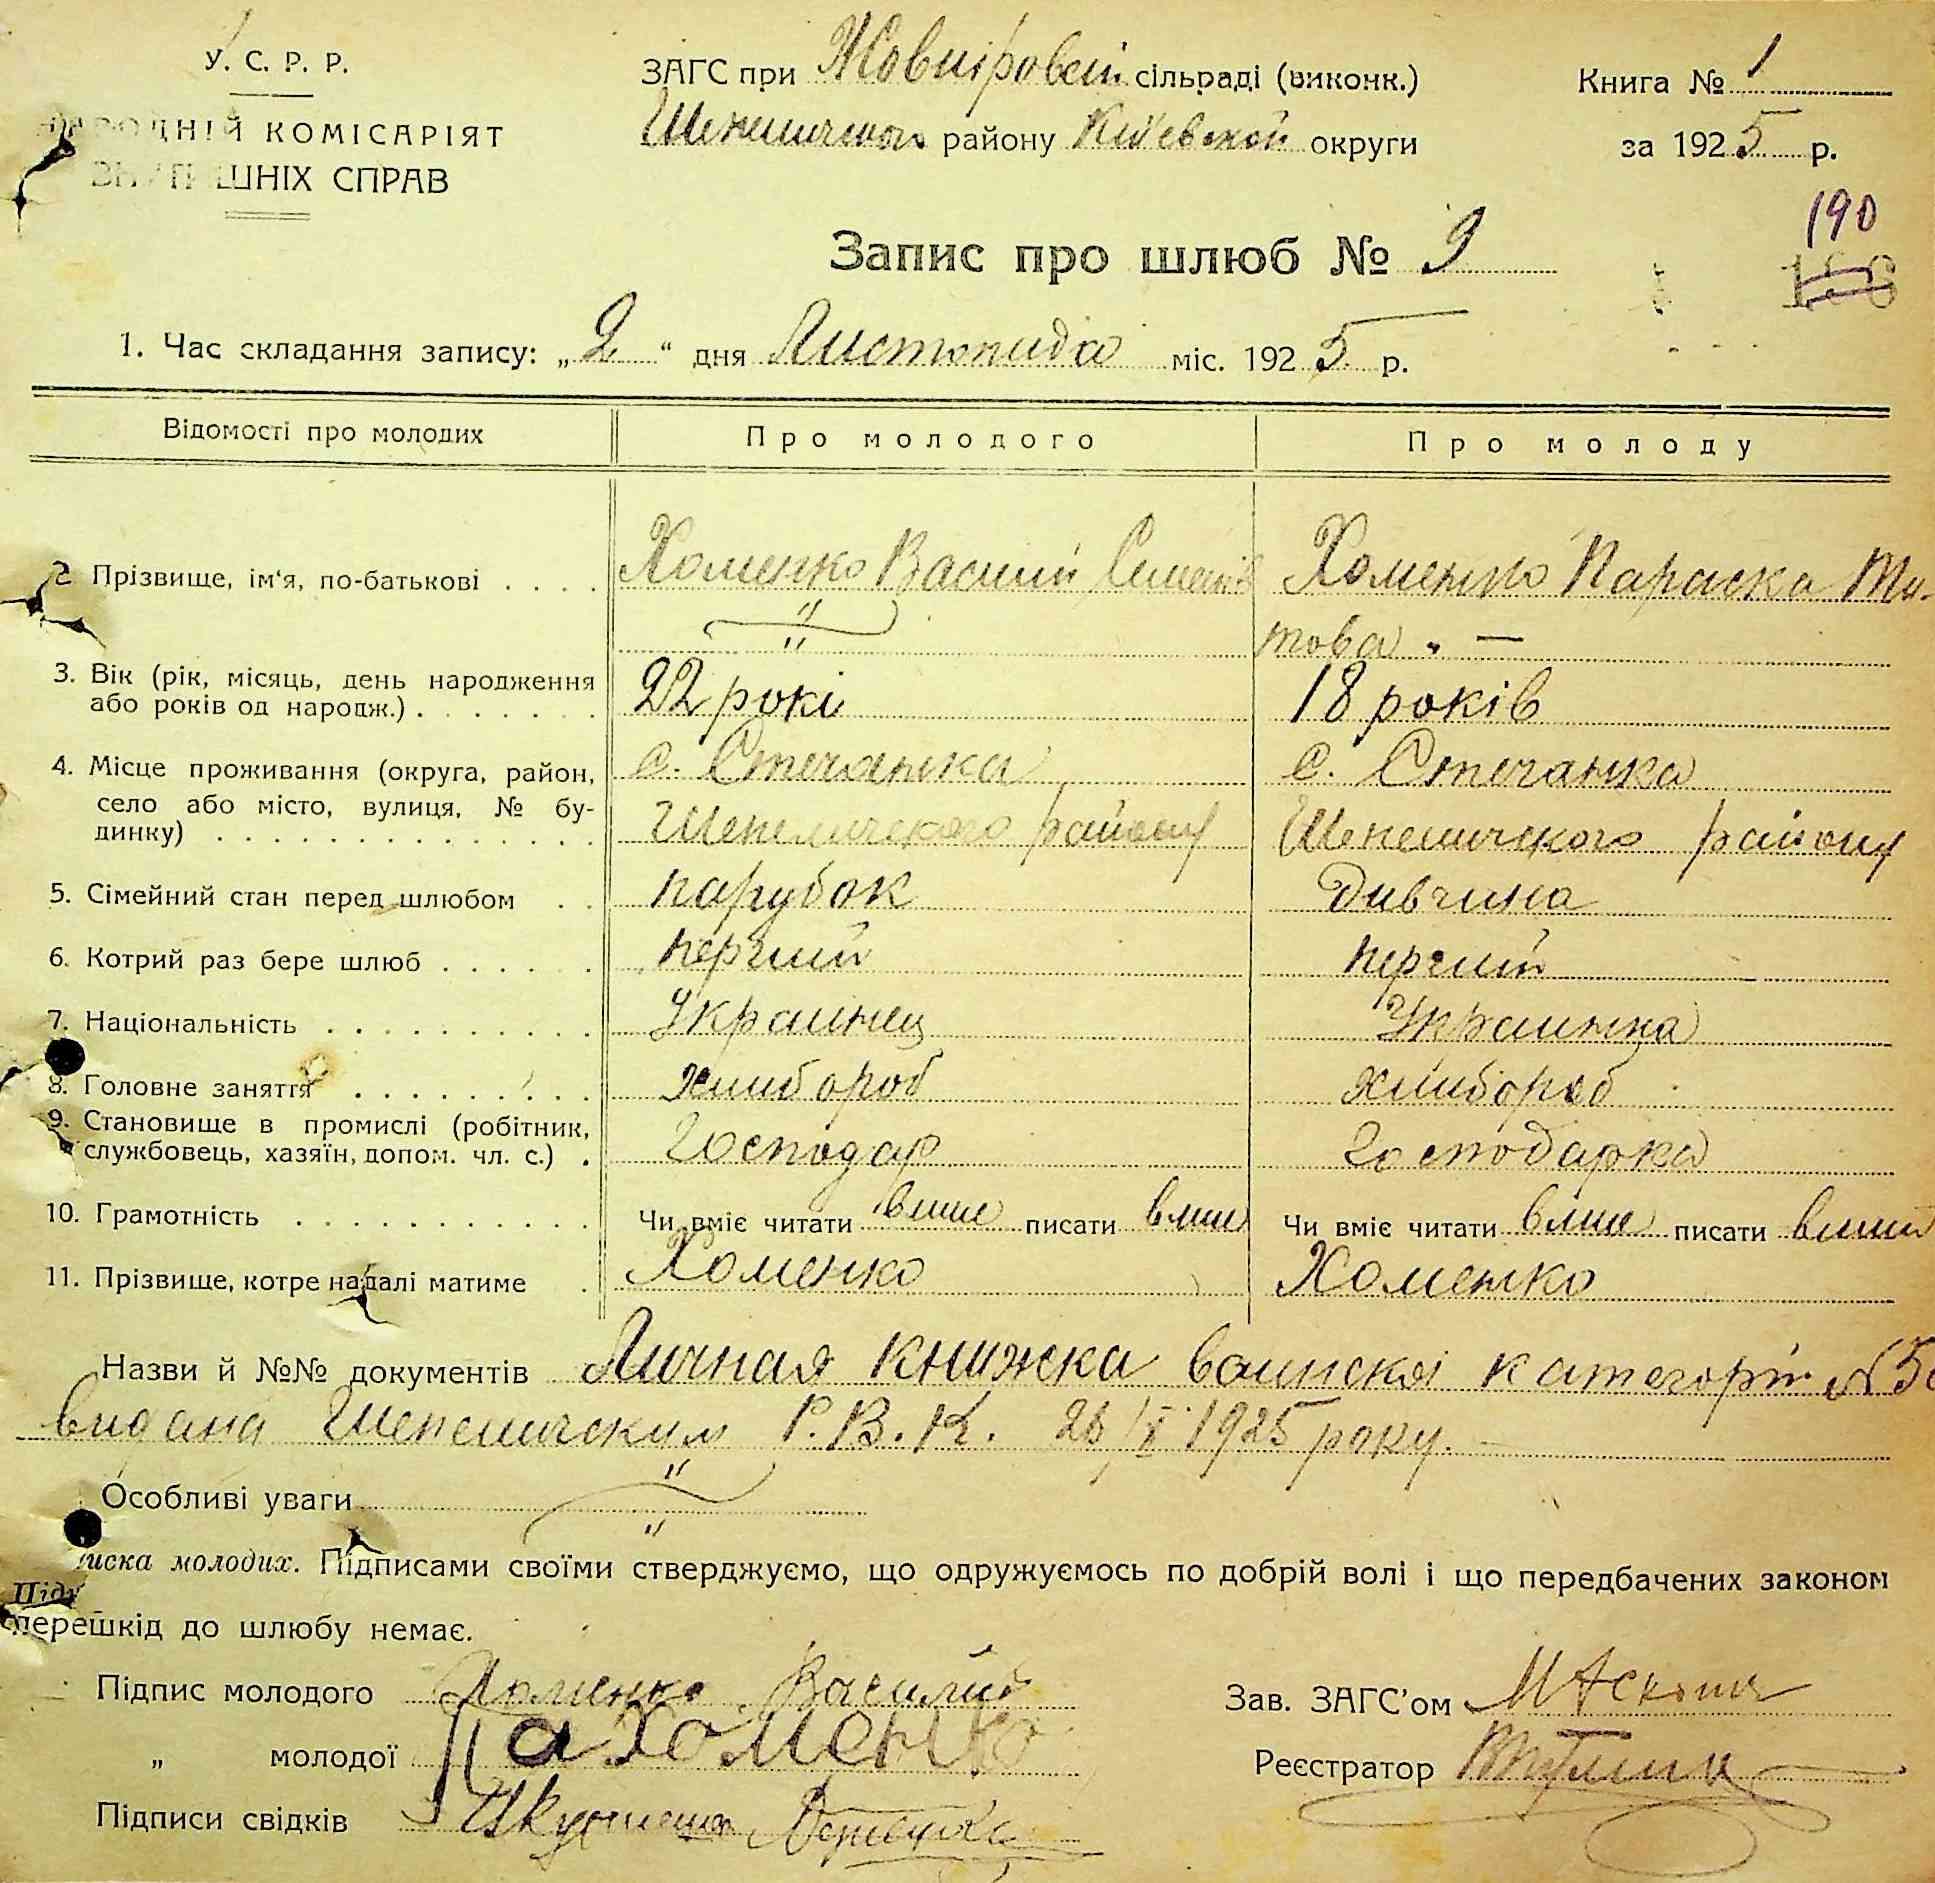 У. С. Р. Р.
НАРОДНІЙ КОМІСАРІЯТ
ВНУТРІШНІХ СПРАВ
ЗАГС при Жовніровскій сільраді (виконк.)
Шепеличского району Київскої округи
Книга № 1
за 1925 р.
190
Запис про шлюб № 9
1. Час складання запису: „2“ дня Листопада міс. 1925 р.
Відомості про молодих Про молодого Про молоду
2. Прізвище, ім‘я, по-батькові Хоменко Василий Семенів Хоменко Параска Ти-
това
3. Вік (рік, місяць, день народження 22 рокі 18 років
або років од народж.)
4. Місце проживання (округа, район, с. Стечанка с. Стечанка
село або місто, вулиця, № бу-
динку) Шепеличского району Шепеличского району
5. Сімейний стан перед шлюбом парубок дивчина
6. Котрий раз бере шлюб перчий перчий
7. Національність Украинец Украинка
8. Головне заняття хлибороб хлибороб
9. Становище в промислі (робітник,
службовець, хазяїн, допом. чл. с.) Господар Господарка
10. Грамотність Чи вміє читати вмие писати вмие Чи вміє читати вмие писати вмие
11. Прізвище, котре надалі матиме Хоменко Хоменко
Назви й №№ документів Личная книжка воинскоі категоріі №
видана Шепеличским Р. В. К. 1925 року.
Особливі уваги
Підписка молодих. Підписами своїми стверджуємо, що одружуємось по добрій волі і що передбачених законом
перешкід до шлюбу немає.
Підпис молодого Хоменко Василий
Зав. ЗАГС’ом
„ молодої Па Хоменко
Реєстратор
Підписи свідків